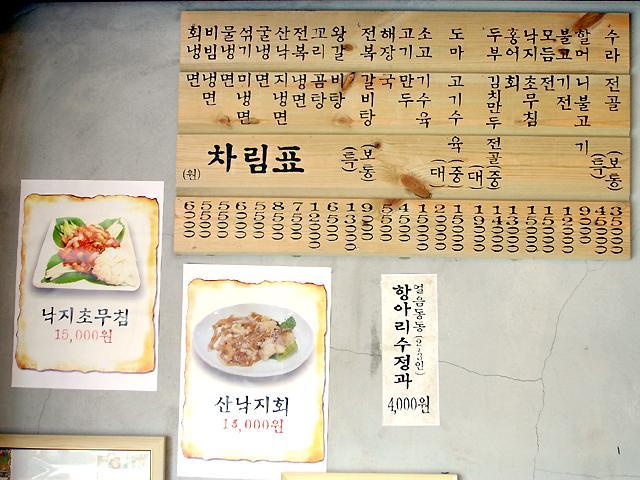 수라전골 (보통) 35000
(특) 45000
할머니불고기 9000
불고기전 12000
모듬전 15000
낙지초무침 15000
홍어회 13000
두부김치만두전골 (중) 14000
(대) 19000
도마고기수육 (중) 15000
(대) 20000
소고기수육
고기만두
해장국
전복갈비탕 (보통)
(특) 13000
왕갈비탕
꼬리곰탕 12000
전복냉면 7500
산낙지냉면 8500
굴냉면
물냉면 5500
비빔냉면 5500
회냉면 6000
차림표
(원)
낙지초무침
15,000원
산낙지회
13,000원
얼음동동 (2~3인)
항아리수정과
4,000원